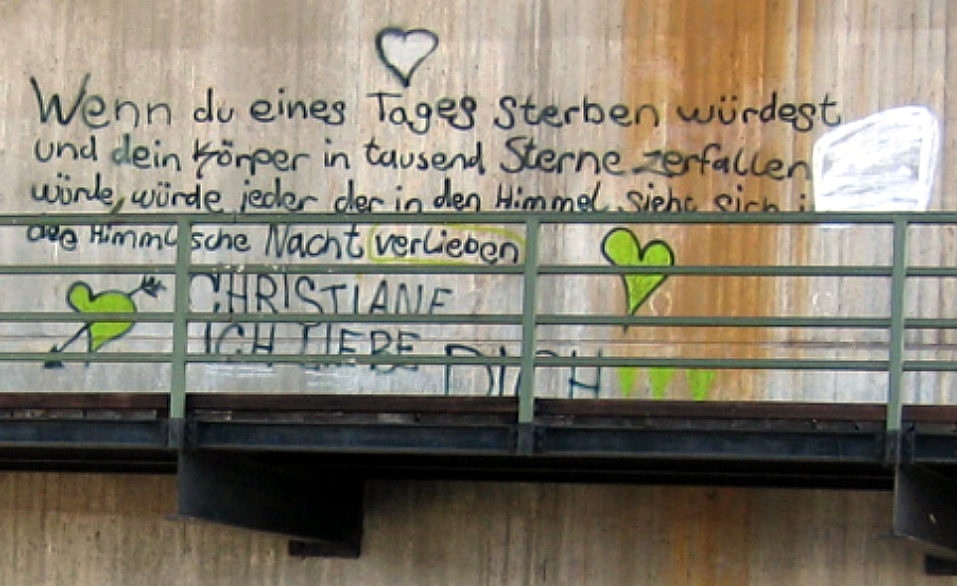 Wenn du eines Tages Sterben würdest
und dein Körper in tausend Sterne zerfallen
würde, würde jeder der in den Himmel sieht sich
Himmlische Nacht verlieben
CHRISTIANE
ICH LIEBE DICH